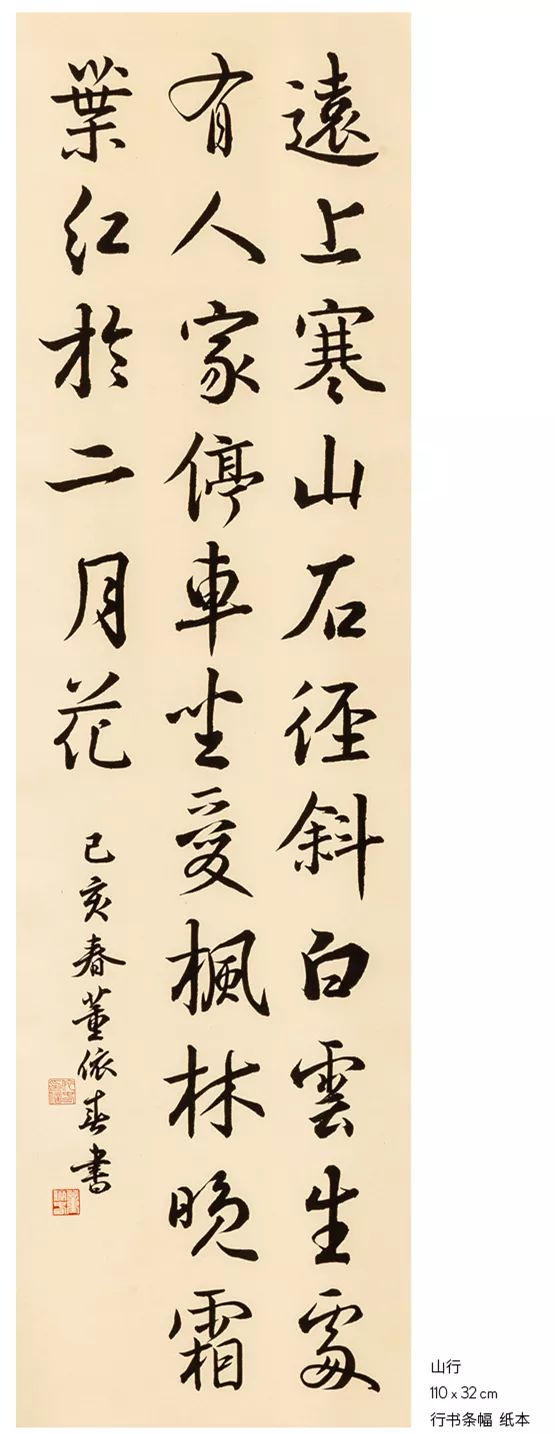 遠上寒山石徑斜白雲生處
有人家停車坐愛楓林晚霜
葉紅於二月花
己亥春董依春書
山行
110 x 32 cm
行书条幅 纸本